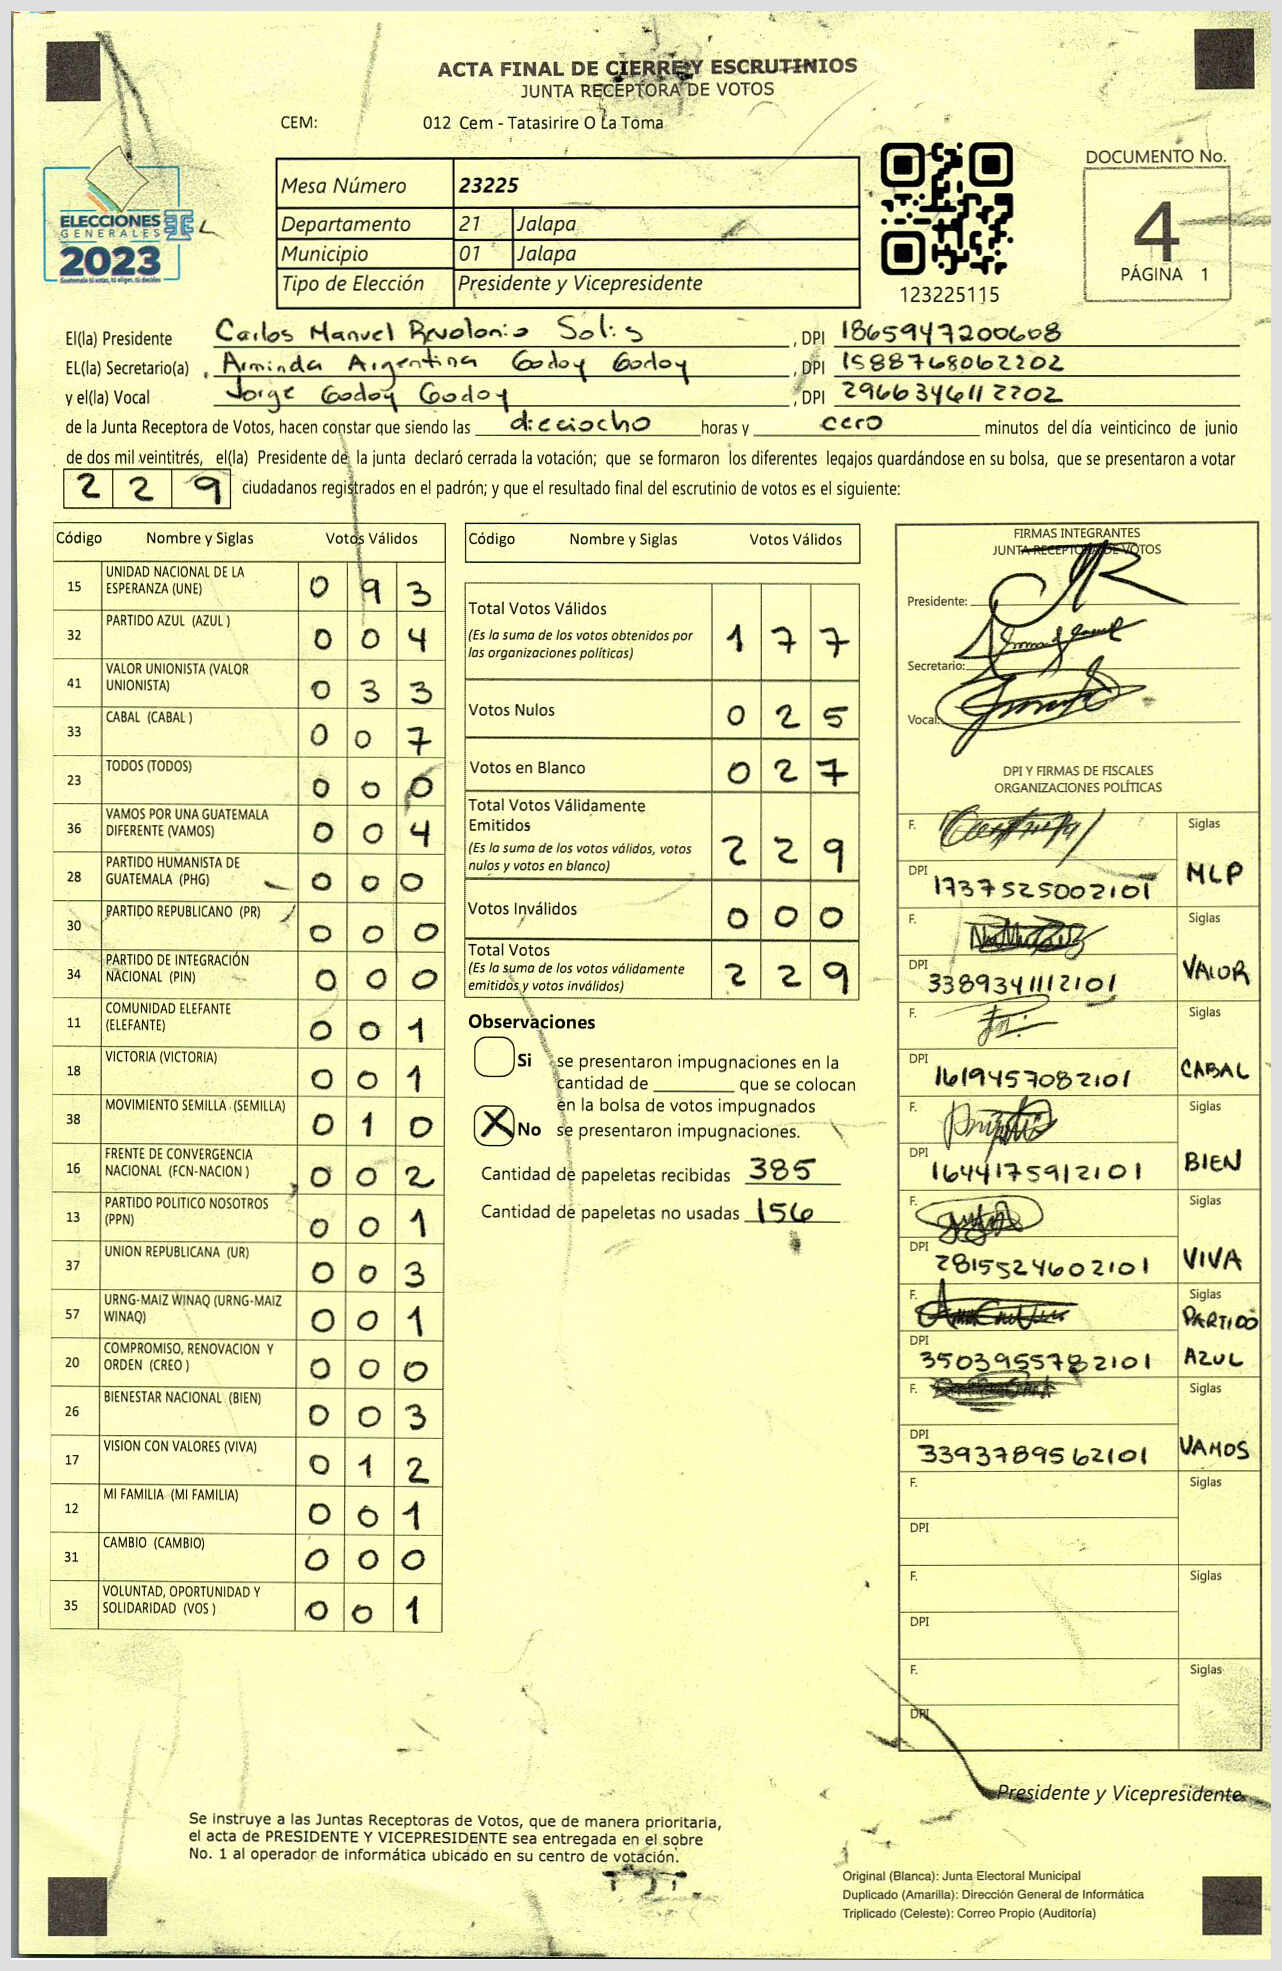 ACTA FINAL DE CIERRE Y ESCRUTINIOS
JUNTA RECEPTORA DE VOTOS
CEM: 012 Cem - Tatasirire O La Toma
ELECCIONES
GENERALES
2023
Mesa Número 23225
Departamento 21 Jalapa
Municipio 01 Jalapa
Tipo de Elección Presidente y Vicepresidente
123225115
DOCUMENTO No.
4
PÁGINA 1
El(la) Presidente Carlos Manuel Revolorio Solis, DPI 1865947200608
EL(la) Secretario(a) Arminda Argentina Godoy Godoy, DPI 1588768062202
y el(la) Vocal Jorge Godoy Godoy, DPI 2966346112202
de la Junta Receptora de Votos, hacen constar que siendo las dieciocho horas y cero minutos del día veinticinco de junio
de dos mil veintitrés, el(la) Presidente de la junta declaró cerrada la votación; que se formaron los diferentes legajos guardándose en su bolsa, que se presentaron a votar
229 ciudadanos registrados en el padrón; y que el resultado final del escrutinio de votos es el siguiente:
Código Nombre y Siglas Votos Válidos
15 UNIDAD NACIONAL DE LA ESPERANZA (UNE) 093
32 PARTIDO AZUL (AZUL ) 004
41 VALOR UNIONISTA (VALOR UNIONISTA) 033
33 CABAL (CABAL ) 007
23 TODOS (TODOS) 000
36 VAMOS POR UNA GUATEMALA DIFERENTE (VAMOS) 004
28 PARTIDO HUMANISTA DE GUATEMALA (PHG) 000
30 PARTIDO REPUBLICANO (PR) 000
34 PARTIDO DE INTEGRACIÓN NACIONAL (PIN) 000
11 COMUNIDAD ELEFANTE (ELEFANTE) 001
18 VICTORIA (VICTORIA) 001
38 MOVIMIENTO SEMILLA (SEMILLA) 010
16 FRENTE DE CONVERGENCIA NACIONAL (FCN-NACION ) 002
13 PARTIDO POLITICO NOSOTROS (PPN) 001
37 UNION REPUBLICANA (UR) 003
57 URNG-MAIZ WINAQ (URNG-MAIZ WINAQ) 001
20 COMPROMISO, RENOVACION Y ORDEN (CREO ) 000
26 BIENESTAR NACIONAL (BIEN) 003
17 VISION CON VALORES (VIVA) 012
12 MI FAMILIA (MI FAMILIA) 001
31 CAMBIO (CAMBIO) 000
35 VOLUNTAD, OPORTUNIDAD Y SOLIDARIDAD (VOS ) 001
Código Nombre y Siglas Votos Válidos
Total Votos Válidos 177
(Es la suma de los votos obtenidos por
las organizaciones políticas)
Votos Nulos 025
Votos en Blanco 027
Total Votos Válidamente
Emitidos 229
(Es la suma de los votos válidos, votos
nulos y votos en blanco)
Votos Inválidos 000
Total Votos 229
(Es la suma de los votos válidamente
emitidos y votos inválidos)
Observaciones
Si se presentaron impugnaciones en la
cantidad de ________ que se colocan
en la bolsa de votos impugnados
X No se presentaron impugnaciones.
Cantidad de papeletas recibidas 385
Cantidad de papeletas no usadas 156
FIRMAS INTEGRANTES
JUNTA RECEPTORA DE VOTOS
Presidente:
Secretario:
Vocal:
DPI Y FIRMAS DE FISCALES
ORGANIZACIONES POLÍTICAS
F. Siglas
DPI 1737525002101 MLP
F. Siglas
DPI 3389341112101 VALOR
F. Siglas
DPI 1619457082101 CABAL
F. Siglas
DPI 1644175912101 BIEN
F. Siglas
DPI 2815524602101 VIVA
F. Siglas
DPI 3503955782101 PARTIDO AZUL
F. Siglas
DPI 3393789562101 VAMOS
F. Siglas
DPI
F. Siglas
DPI
F. Siglas
DPI
Presidente y Vicepresidente
Se instruye a las Juntas Receptoras de Votos, que de manera prioritaria,
el acta de PRESIDENTE Y VICEPRESIDENTE sea entregada en el sobre
No. 1 al operador de informática ubicado en su centro de votación.
Original (Blanca): Junta Electoral Municipal
Duplicado (Amarilla): Dirección General de Informática
Triplicado (Celeste): Correo Propio (Auditoría)